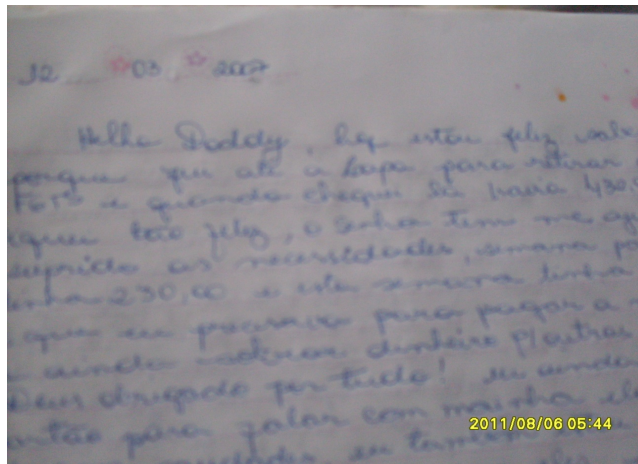 12 03 2007
Hello Daddy, hoje estou feliz
porque fui até a Lapa para retirar
FGTS e quando cheguei lá havia 430,
fiquei tão feliz, o Senhor tem me
suprido as necessidades, semana
tinha 230,00 e esta semana tinha
que eu precisava para pagar a
e ainda sobrar dinheiro p/outras
Deus obrigado por tudo! eu ainda
cartão para falar com mainha
saudades, eu também
2011/08/06 05:44